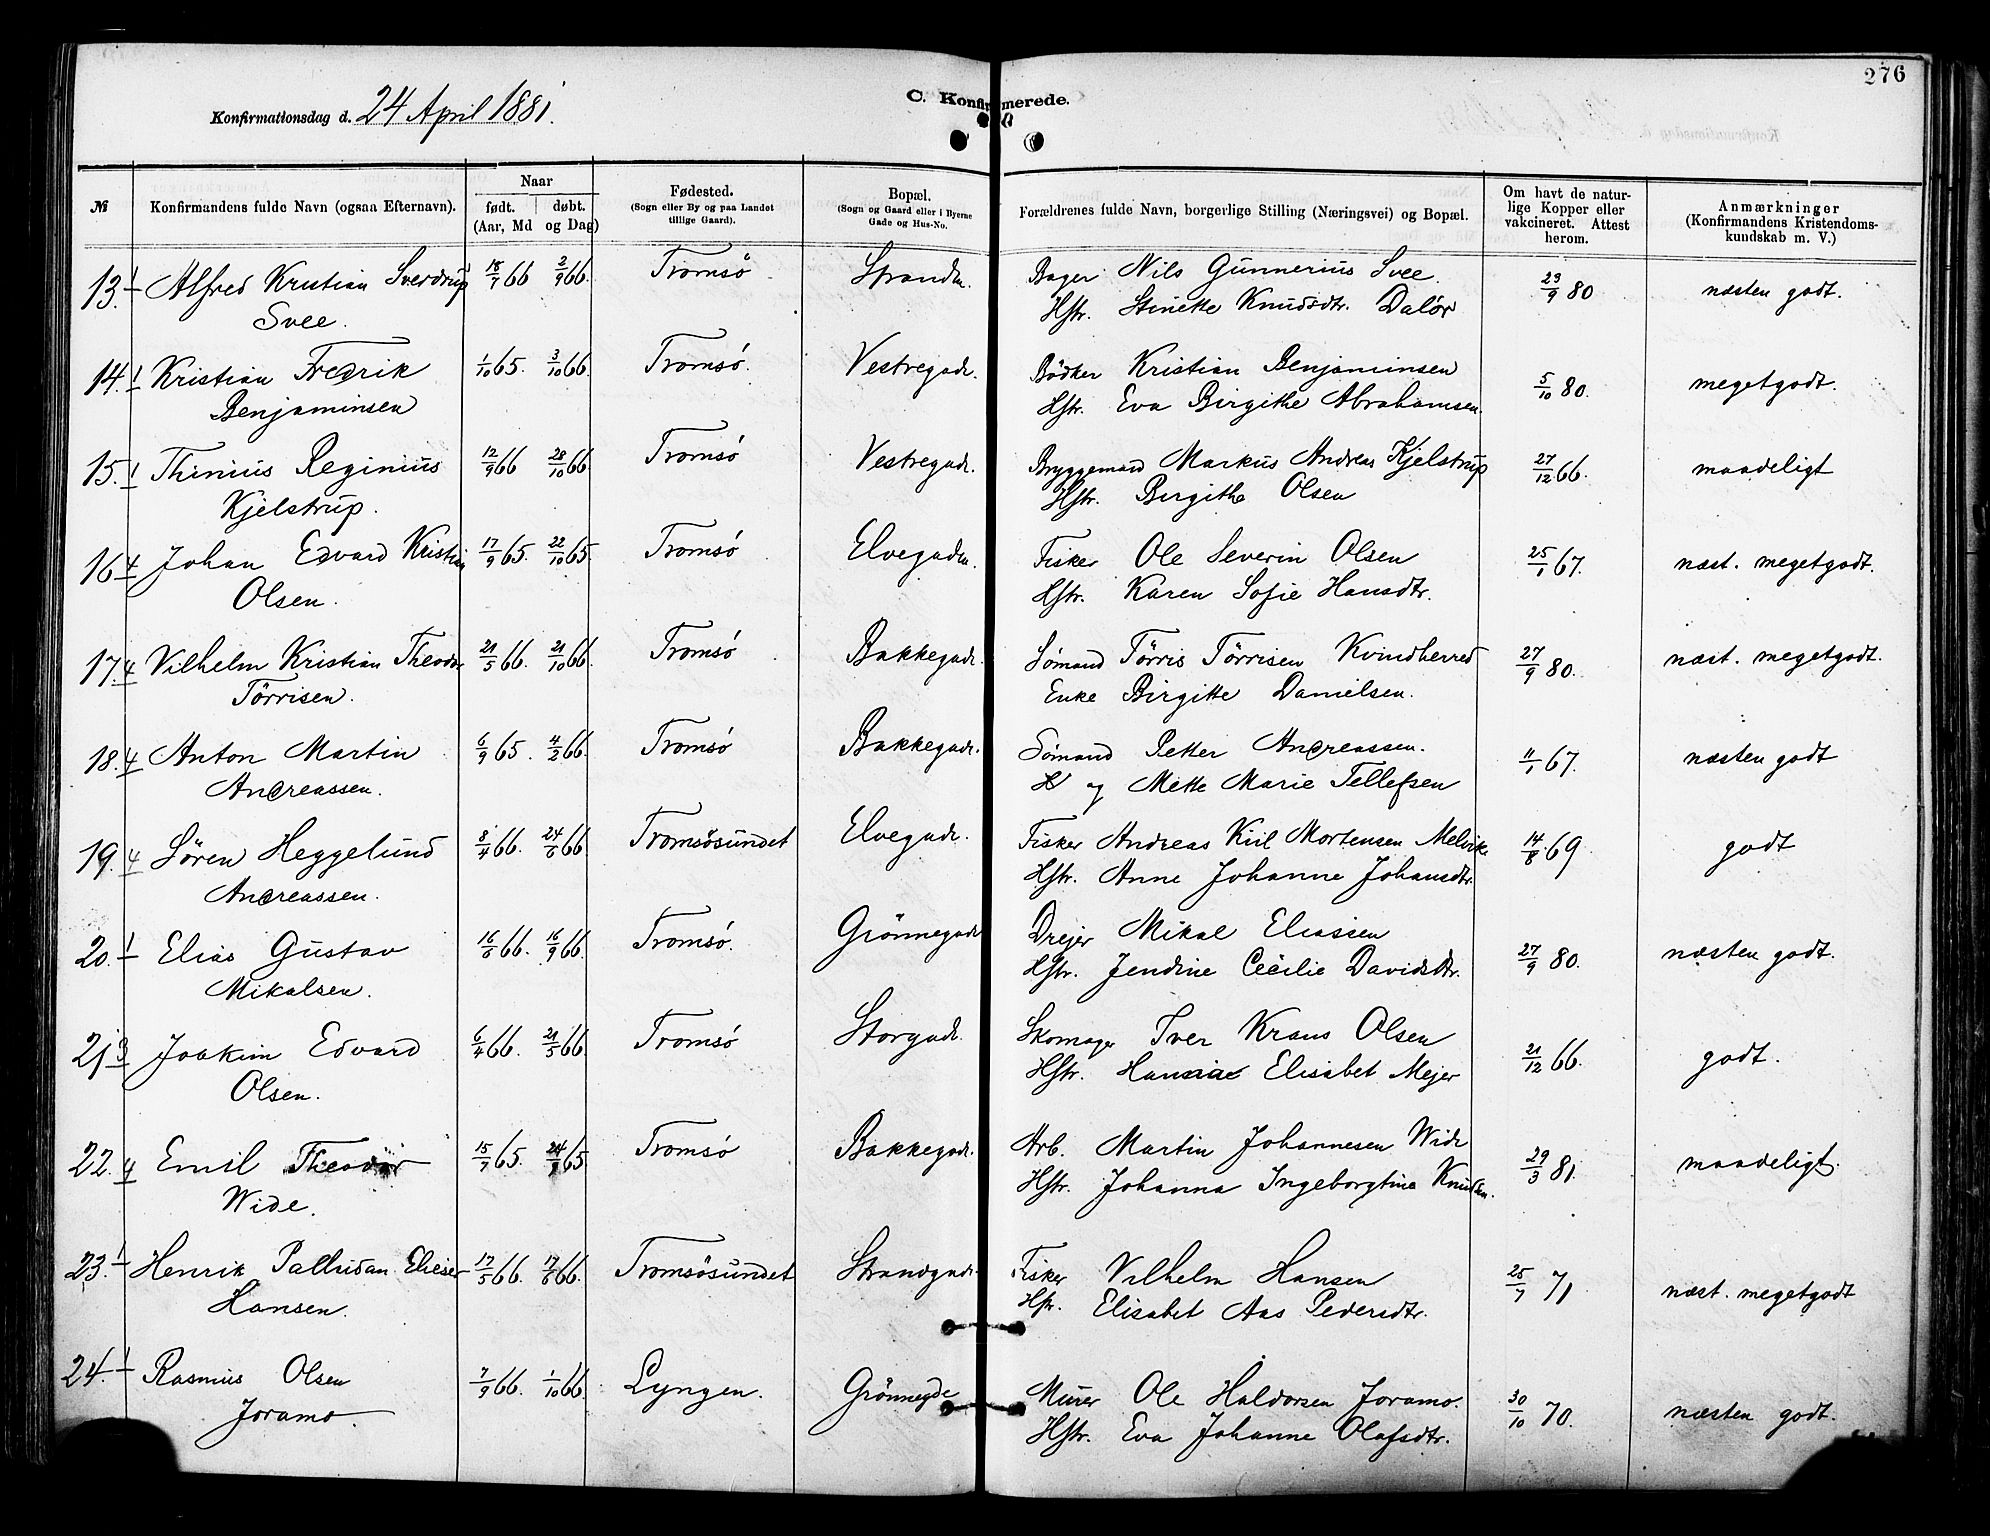 276
C. Konfirmerede.
Konfirmationsdag d. 24 April 1881.
№ Konfirmandens fulde Navn (ogsaa Efternavn). Naar født. (Aar, Md døbt. og Dag) Fødested. (Sogn eller By og paa Landet tillige Gaard). Bopæl. (Sogn og Gaard eller i Byerne Gade og Hus-No. Forældrenes fulde Navn, borgerlige Stilling (Næringsvei) og Bopæl. Om havt de naturlige Kopper eller vakcineret. Attest herom. Anmærkninger (Konfirmandens Kristendomskundskab m. V.)
13. 1 Alfred Kristian Sverdrup 18/7 66 2/9 66. Tromsö Strandn. Bager Nils Gunnerius Svee. 23/9 80 næsten godt.
Svee. Hstr. Stinette Knudsdtr. Dalör
14. 1 Kristian Fredrik 1/10 65. 3/10 66. Tromsö. Vestregade. Bödker Kristian Benjaminsen 5/10 80. megetgodt.
Benjaminsen Hstr. Eva Birgithe Abrahamsen.
15. 1 Thinius Reginius 12/9 66 28/10 66. Tromsö Vestregade. Bryggemand Markus Andreas Kjelstrup 27/12 66. maadeligt
Kjelstrup. Hstr. Birgithe Olsen
16 4 Johan Edvard Kristian 17/9 65. 22/10 65. Tromsö Elvegaden. Fisker Ole Severin Olsen 25/1 67. næst. megetgodt.
Olsen. Hstr. Karen Sofie Hansdtr.
17. 4 Vilhelm Kristian Theodor 21/5 66. 21/10 66. Tromsö Bakkegade. Sömand Törris Törrisen Kvindherred 27/9 80. næst. megetgodt.
Törrisen. Enke Birgitte Danielsen.
18. 4 Anton Martin 6/9 65. 4/2 66. Tromsö Bakkegade. Sömand Petter Andreassen. 11/1 67. næsten godt
Andreassen. H og Mette Marie Tellefsen
19. 4 Sören Heggelund 8/4 66. 24/6 66. Tromsösundet Elvegade. Fisker Andreas Kiil Mortensen Melvike 14/8 69 godt
Andreassen. Hstr. Anne Johanne Johansdtr.
20. 1 Elias Gustav 16/6 66. 16/9 66. Tromsö. Grönnegade Drejer Mikal Eliassen 27/9 80. næsten godt.
Mikalsen. Hstr. Jendine Cecilie Davidsdtr.
21. 3 Joakim Edvard 6/4 66. 21/5 66. Tromsö Storgade. Skomager Iver Kraus Olsen 21/12 66. godt.
Olsen. Hstr. Elisabet Mejer
22. 4 Emil Theodor 15/7 65. 65. Tromsö Bakkegade. Arb. Martin Johannesen Wide 29/3 81. maadeligt.
Wide. Hstr. Johanna Ingeborgtine Knudsen.
23. 1 Henrik Palludan Elieser 17/5 66. 17/6 66. Tromsösundet Strandgade. Fisker Vilhelm Hansen 25/7 71 næst. megetgodt
Hansen. Hstr. Elisabet Aas Pedersdtr.
24. 1 Rasmus Olsen 7/9 66. 1/10 66. Lyngen. Grönnegde Murer Ole Haldorsen Joramo. 30/10 70. næsten godt.
Joramo. Hstr. Eva Johanne Olafsdtr.